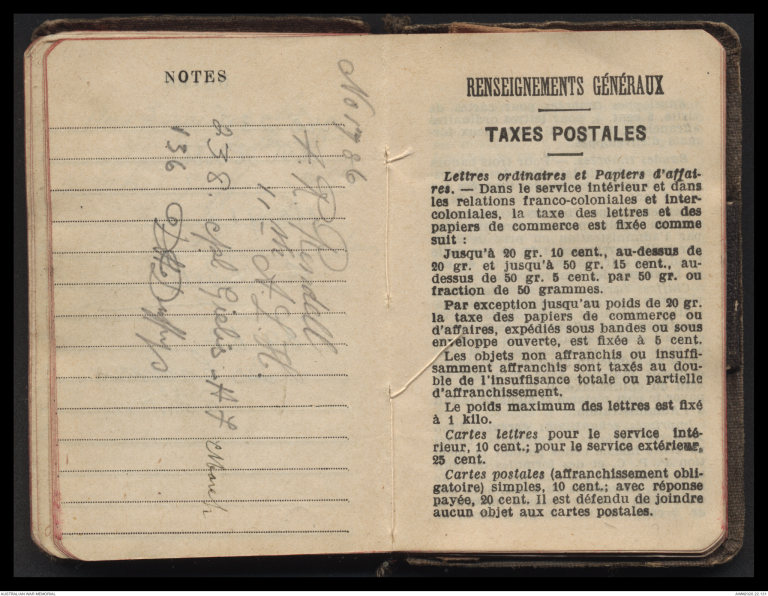 NOTES
No 1786
F. R. Rendell
11th A.L.H.
238. Cpl Gielis H F
136
RENSEIGNEMENTS GÉNÉRAUX
TAXES POSTALES
Lettres ordinaires et Papiers d'affai-
res. — Dans le service intérieur et dans
les relations franco-coloniales et inter-
coloniales, la taxe des lettres et des
papiers de commerce est fixée comme
suit :
Jusqu'à 20 gr. 10 cent., au-dessus de
20 gr. et jusqu'à 50 gr. 15 cent., au-
dessus de 50 gr. 5 cent. par 50 gr. ou
fraction de 50 grammes.
Par exception jusqu'au poids de 20 gr.
la taxe des papiers de commerce ou
d'affaires, expédiés sous bandes ou sous
enveloppe ouverte, est fixée à 5 cent.
Les objets non affranchis ou insuffi-
samment affranchis sont taxés au dou-
ble de l'insuffisance totale ou partielle
d'affranchissement.
Le poids maximum des lettres est fixé
à 1 kilo.
Cartes lettres pour le service inté-
rieur, 10 cent.; pour le service extérieur,
25 cent.
Cartes postales (affranchissement obli-
gatoire) simples, 10 cent.; avec réponse
payée, 20 cent. Il est défendu de joindre
aucun objet aux cartes postales.
AUSTRALIAN WAR MEMORIAL